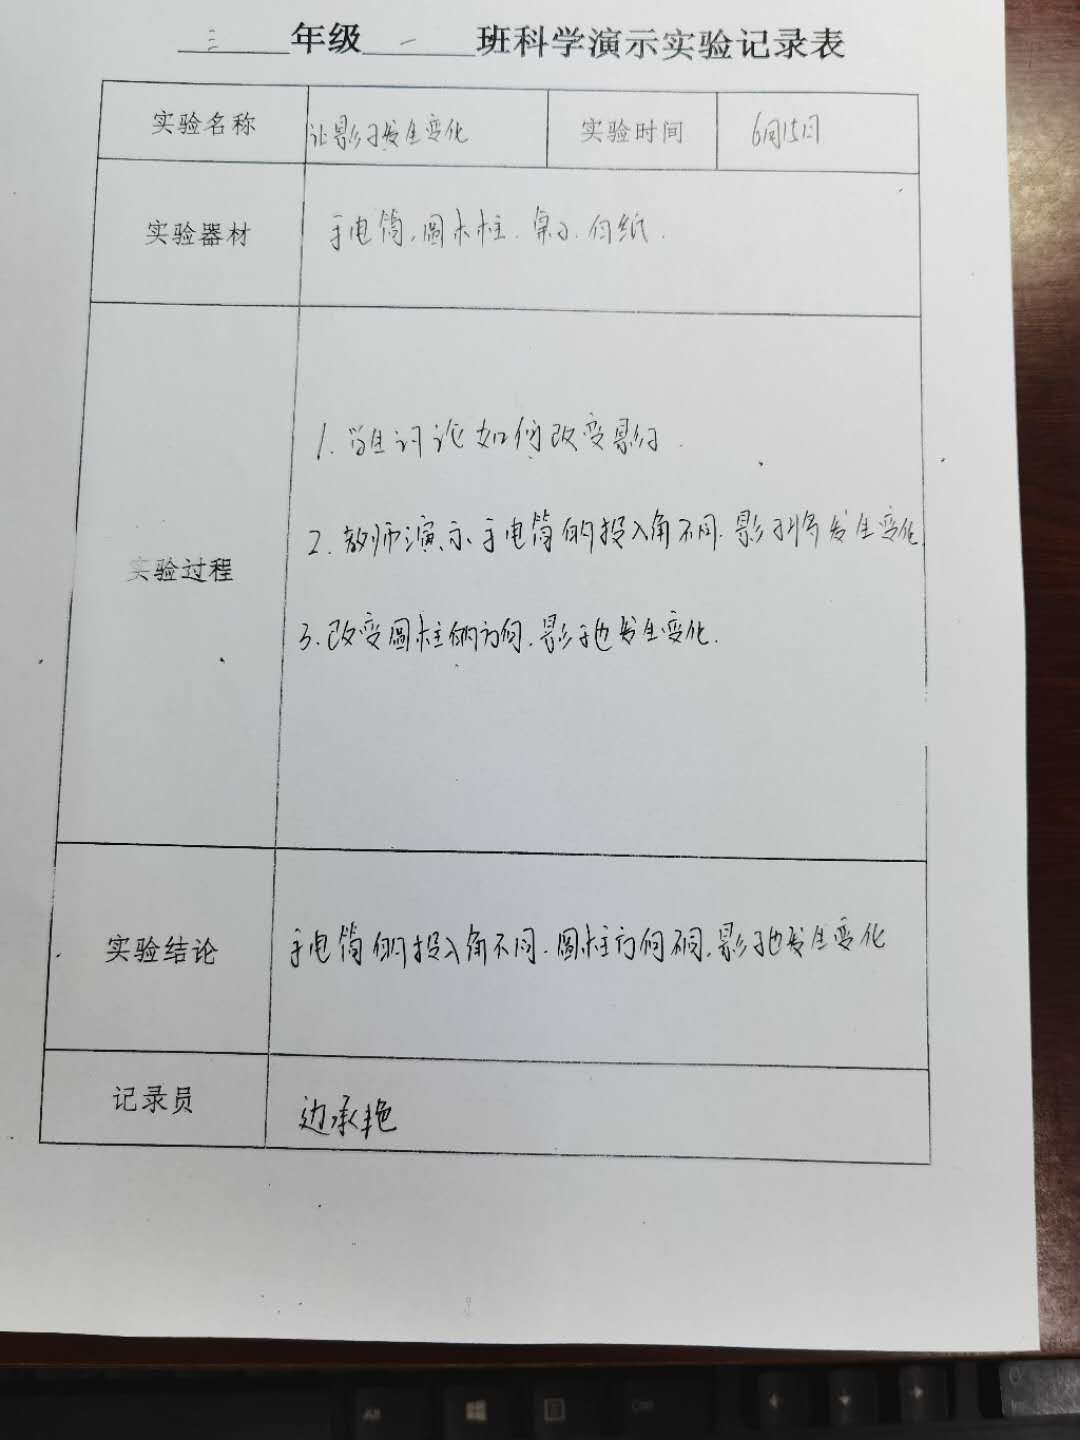 三年级一班科学演示实验记录表
实验名称 让影子发生变化 实验时间 6月15日
实验器材 手电筒、圆木柱、桌子、白纸.
1. 学生讨论如何改变影子.
2. 教师演示手电筒的投入角不同.影子将发生变化.
实验过程
3. 改变圆柱的方向.影子也发生变化.
实验结论 手电筒的投入角不同.圆柱方向不同.影子也发生变化
记录员 边承艳